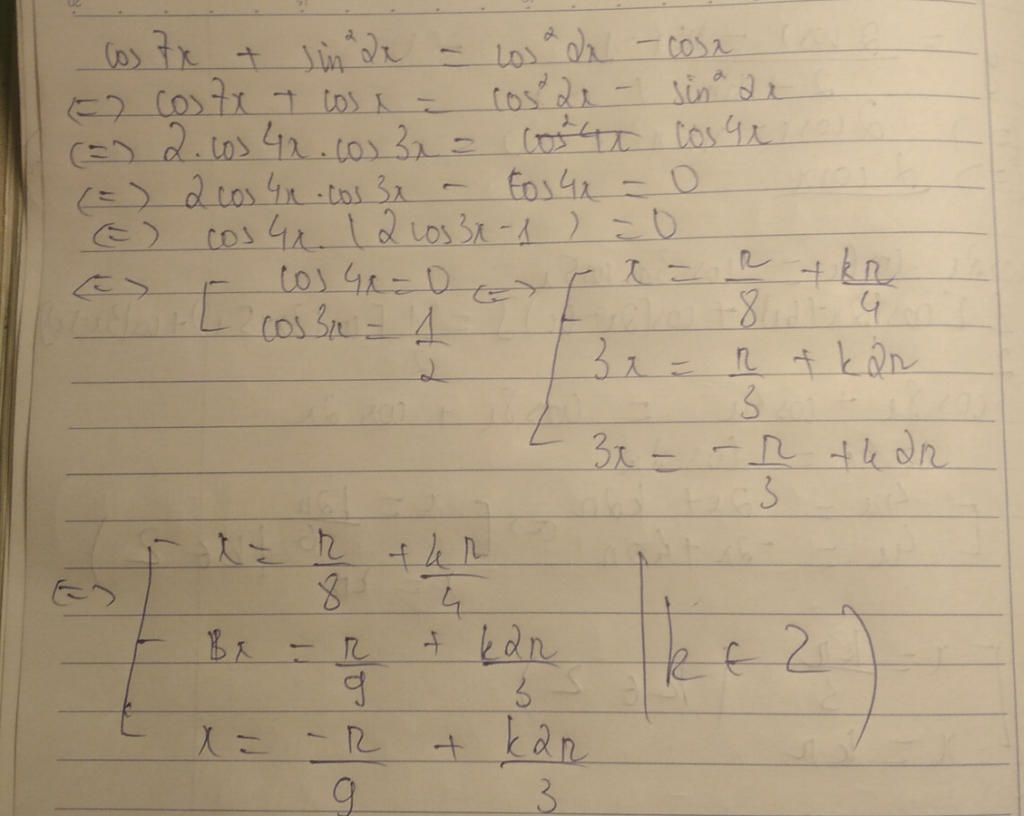 cos7x + sin²2x = cos²2x - cosx
<=> cos7x + cosx = cos²2x - sin²2x
<=> 2.cos4x.cos3x = cos²4x cos4x
<=> 2cos4x.cos3x - cos4x = 0
<=> cos4x.(2cos3x-1) = 0
<=> [ cos4x=0 <=> [ x = π/8 + kπ/4
cos3x = 1/2
3x = π/3 + k2π
3x = -π/3 + k2π
<=> [ x = π/8 + kπ/4
x = π/9 + k2π/3 (k ∈ Z)
x = -π/9 + k2π/3